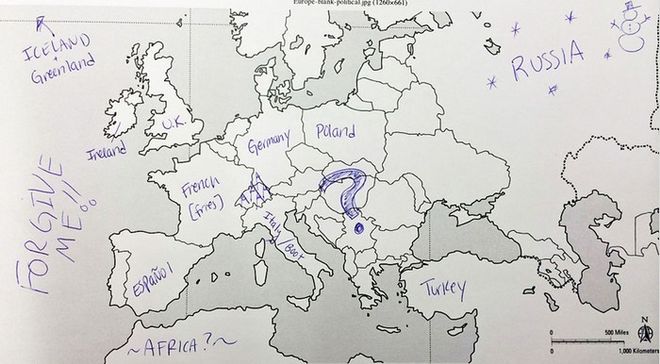 Europe-blank-political.jpg (1260x661)
ICELAND
+
Greenland
RUSSIA
U.K.
Ireland
Germany
Poland
French
[fries]
?
Italy/Boot
FORGIVE
ME!!
ESPAÑOL
Turkey
~AFRICA?~
N
0
500 Miles
0
1,000 Kilometers